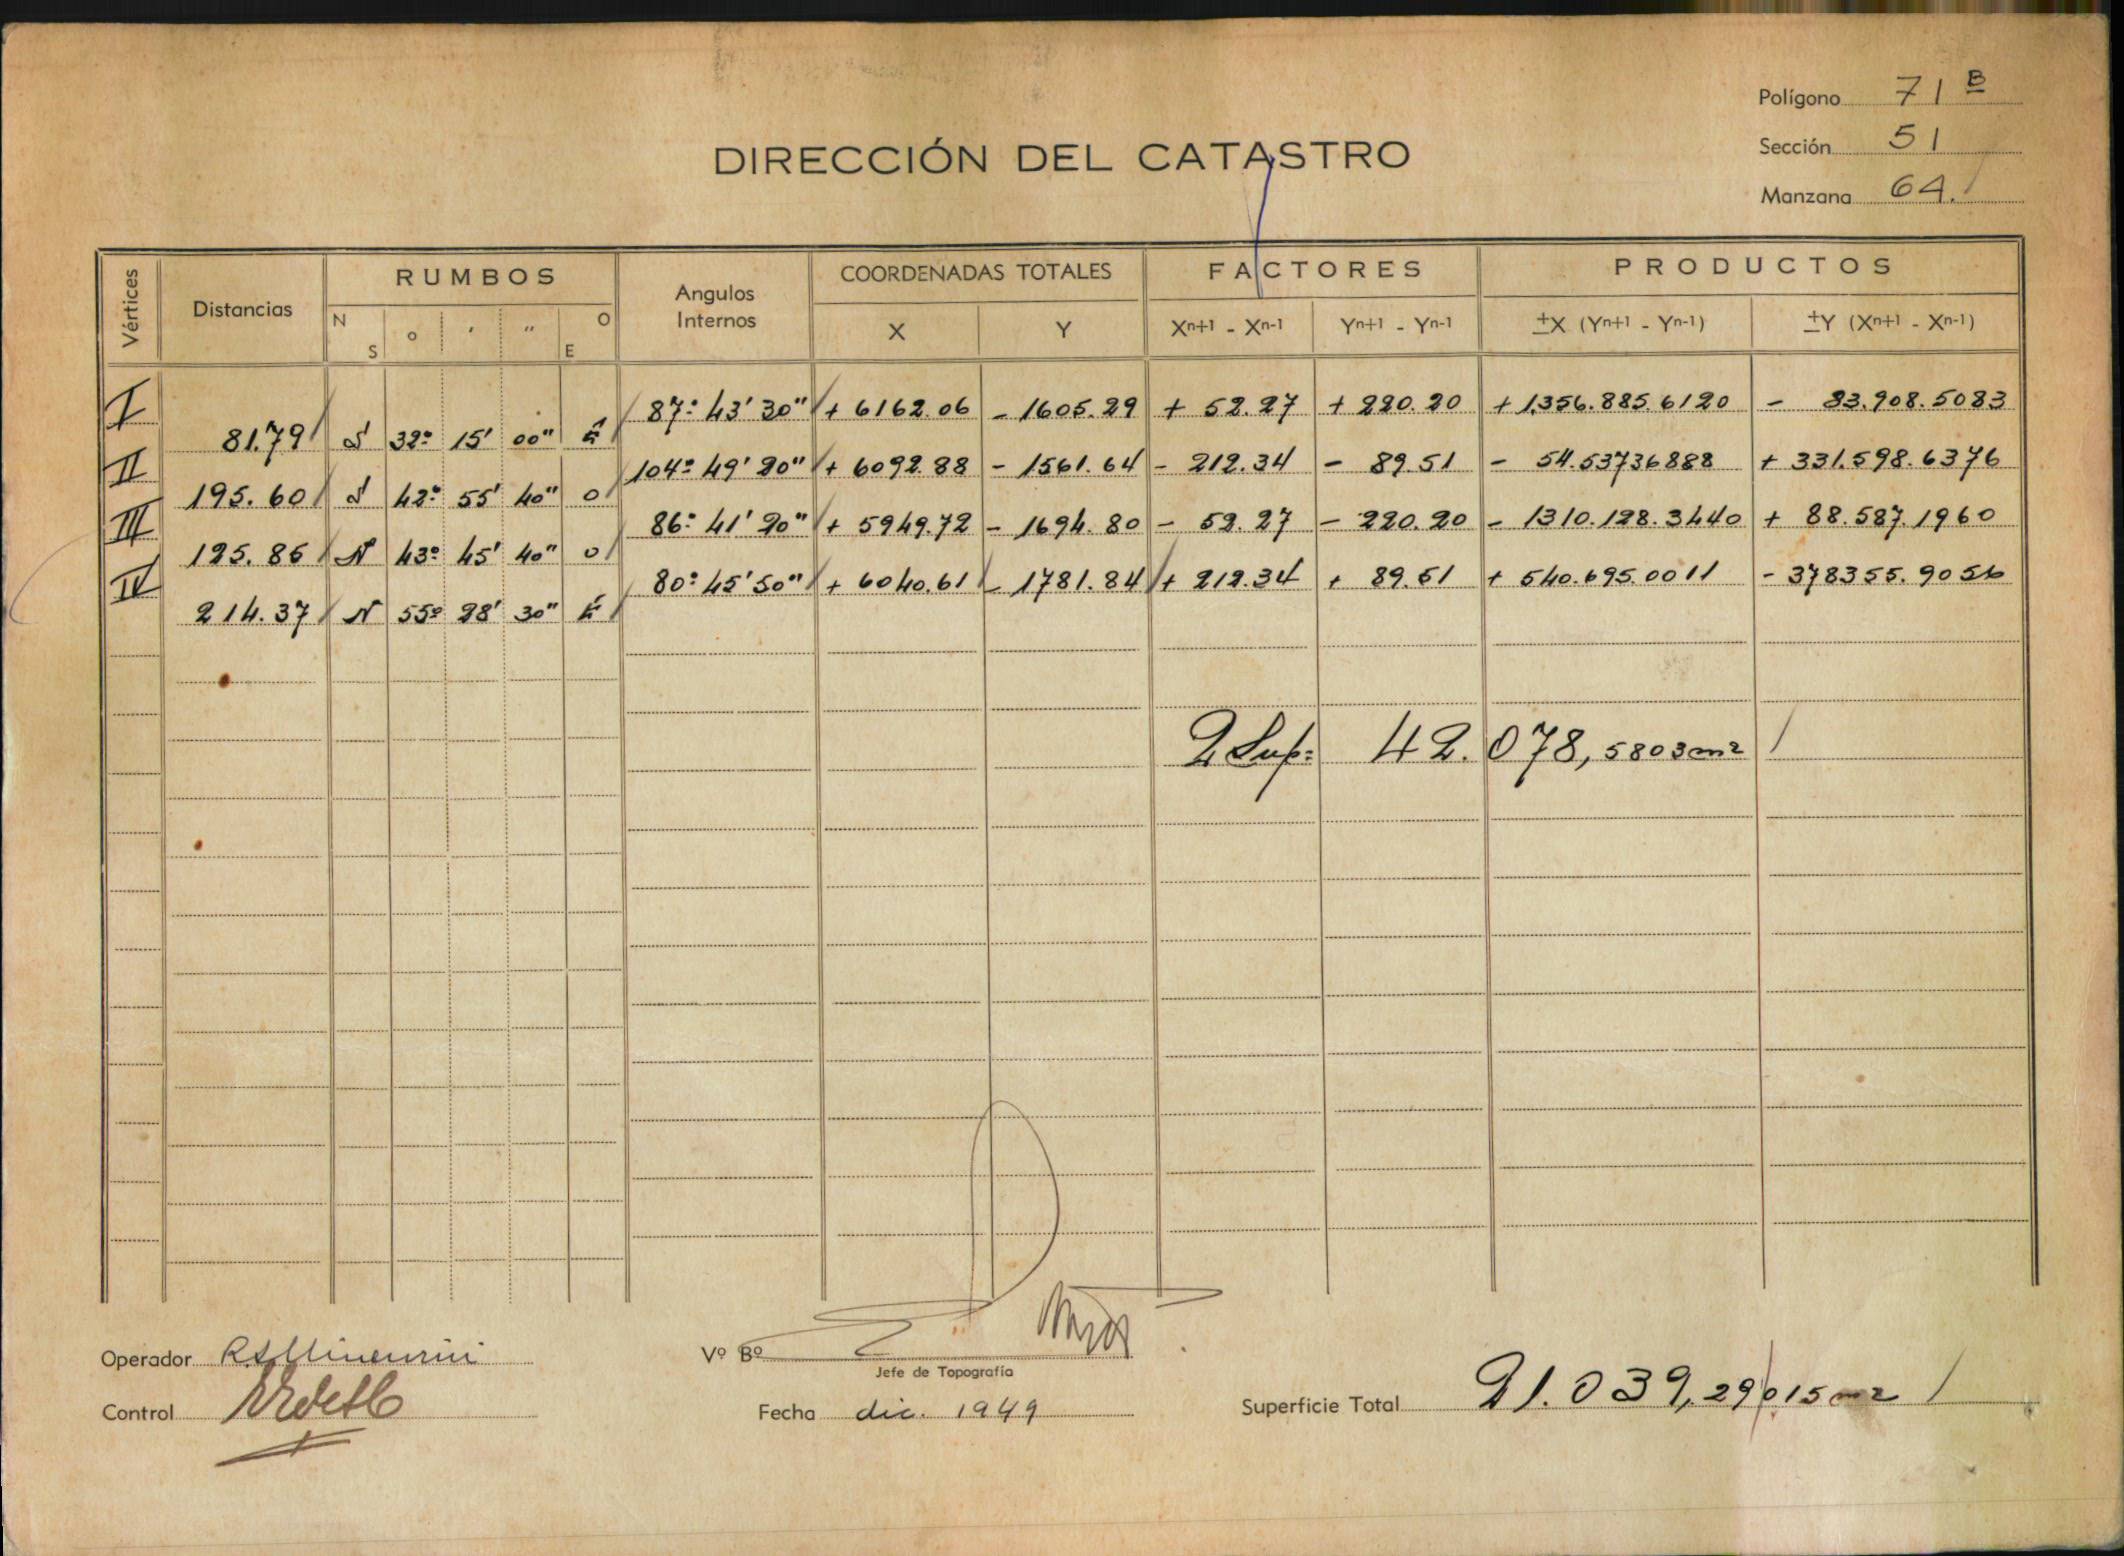 Polígono 71 B
Sección 51
Manzana 64.
DIRECCIÓN DEL CATASTRO
Vértices Distancias RUMBOS Angulos Internos COORDENADAS TOTALES FACTORES PRODUCTOS
N S ° ' " O E X Y Xn+1 - Xn-1 Yn+1 - Yn-1 ±X (Yn+1 - Yn-1) ±Y (Xn+1 - Xn-1)
I 87° 43' 30" + 6162.06 - 1605.29 + 52.27 + 220.20 + 1.356.885.6120 - 83.908.5083
81.79 S 32° 15' 00" E
II 104° 49' 20" + 6092.88 - 1561.64 - 212.34 - 89.51 - 54.53736888 + 331.598.6376
195.60 S 42° 55' 40" O
III 86° 41' 20" + 5949.72 - 1694.80 - 52.27 - 220.20 - 1310.128.3440 + 88.587.1960
125.86 N 43° 45' 40" O
IV 80° 45' 50" + 6040.61 - 1781.84 + 212.34 + 89.51 + 540.695.0011 - 378355.9056
214.37 N 55° 28' 30" E
2 Sup: 42.078,5803 m2
Operador
Vº Bº
Jefe de Topografía
Control
Fecha dic. 1949
Superficie Total 21.039,29015 m2